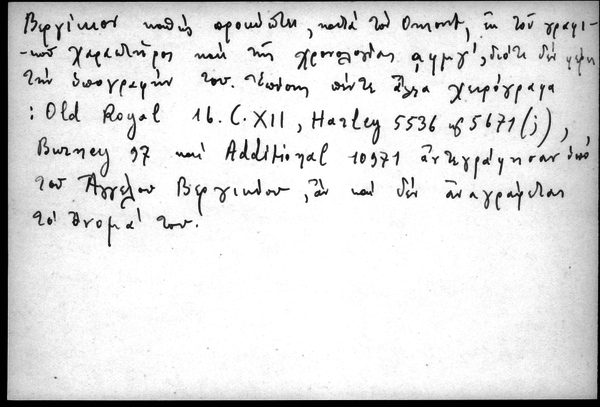 Βεργίκιος καθὼς προκύπτει, κατὰ τὸν Omont, ἐκ τοῦ γραφι-
-κοῦ χαρακτῆρος καὶ τῆς χρονολογίας αφμγ', διότι δὲν φέρει
τὴν ὑπογραφήν του. Ἐπίσης πέντε ἄλλα χειρόγραφα
: Old Royal 16. C. XII, Harley 5536 καὶ 5671 (;),
Burney 97 καὶ Additional 10971 ἀντεγράφησαν ὑπὸ
τοῦ Ἀγγέλου Βεργικίου, ἂν καὶ δὲν ἀναγράφεται
τὸ ὄνομά του.